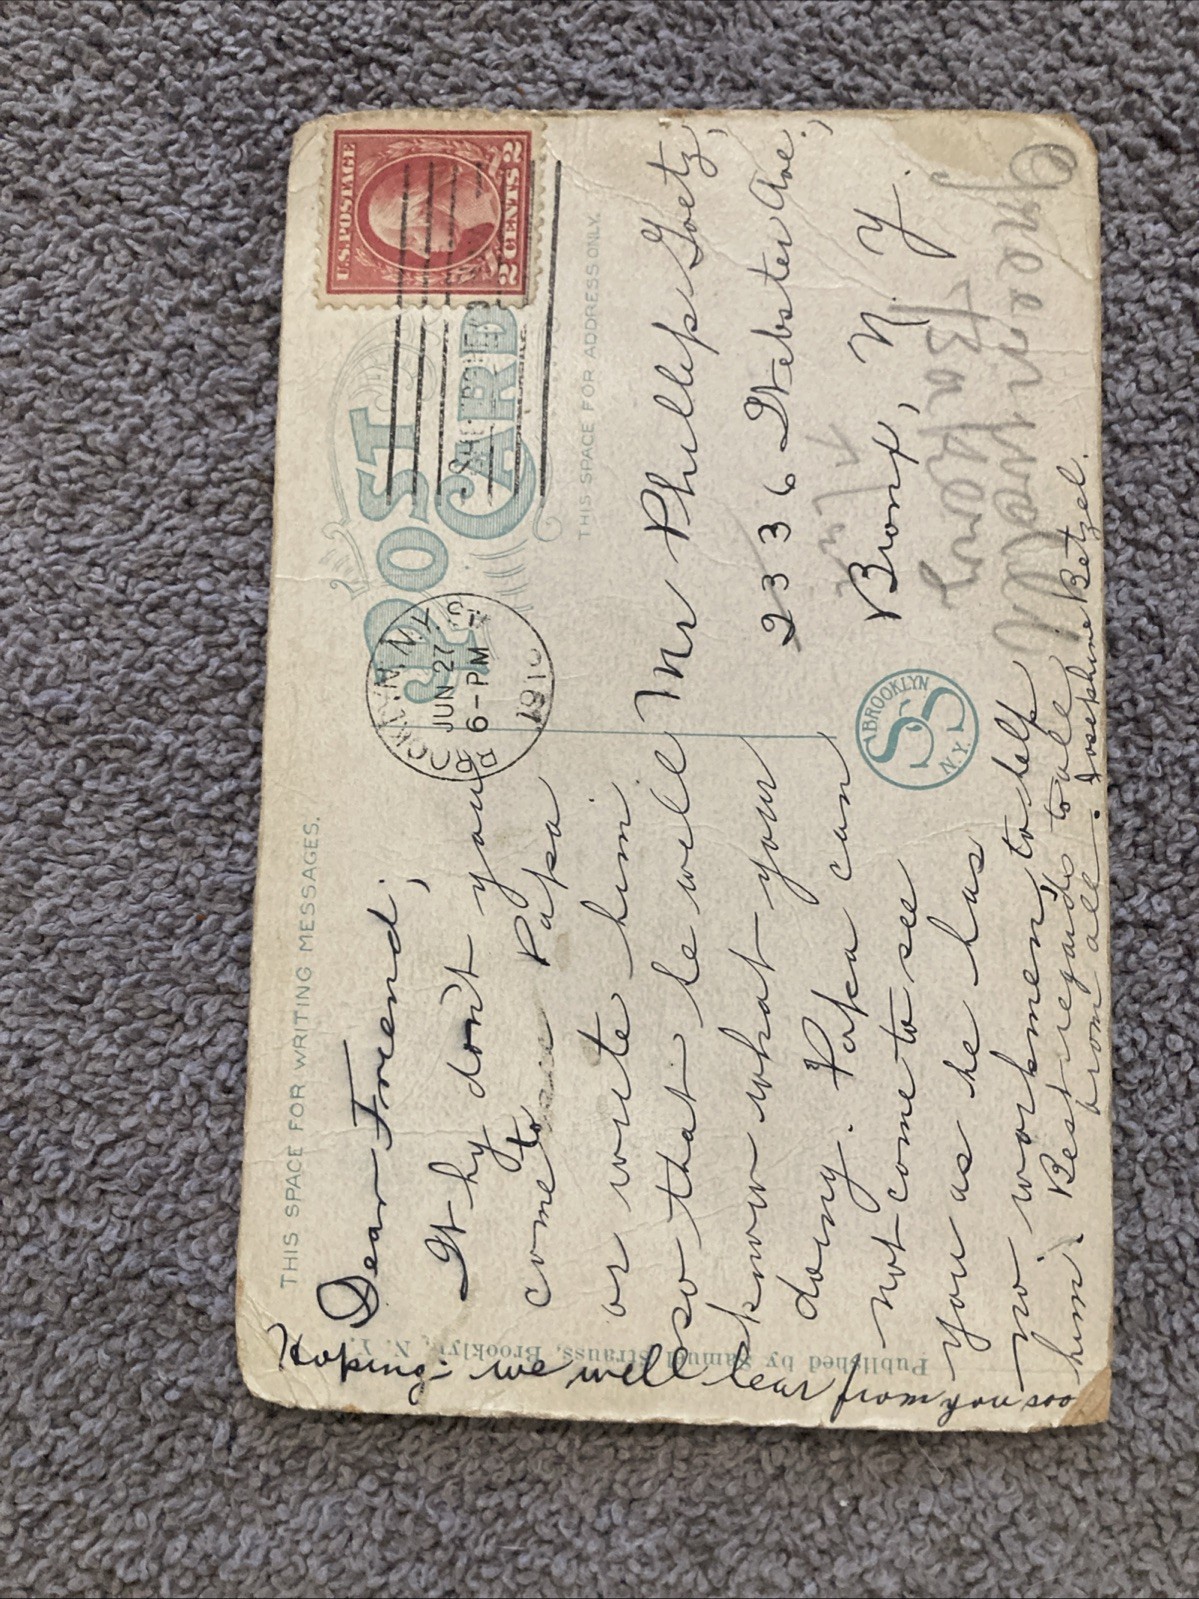 THIS SPACE FOR WRITING MESSAGES.
Dear Friend;
Why don't you
come to Papa
or write him
so that he will
know what your
doing. Papa can
not come to see
you as he has
no workmen to help
him. Best regards to all
from all. Josephine Betzel.
Hoping we will hear from you soo
Published by Samuel Strauss, Brooklyn, N. Y.
POST
CARD
THIS SPACE FOR ADDRESS ONLY.
U.S. POSTAGE
2 CENTS 2
BROOKLYN, N.Y.
JUN 27
6-PM
1910
Mr Phillip Goetz,
2336 Webster Ave.,
Bronx, N. Y.
BROOKLYN
SS
N.Y.